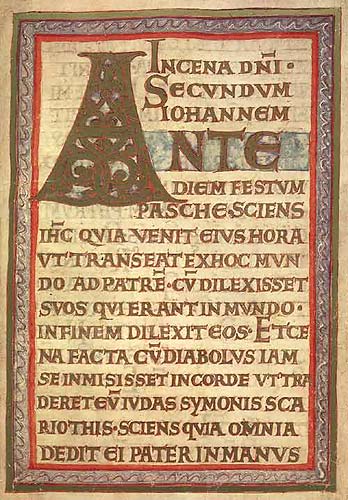 IN CENA DN̄I·
SECUNDUM
IOHANNEM
ANTE
DIEM FESTVM
PASCHE·SCIENS
IH̄C QVIA VENIT EIVS HORA
VT TRANSEAT EXHOC MVN
DO AD PATRĒ· CV̄ DILEXISSET
SVOS QVI ERANT IN MVNDO·
INFINEM DILEXIT EOS· ET CE
NA FACTA CV̄ DIABOLVS IAM
SE INMISISSET INCORDE VT TRA
DERET EV̄ IVDAS SYMONIS SCA
RIOTHIS· SCIENS QVIA OMNIA
DEDIT EI PATER IN MANVS